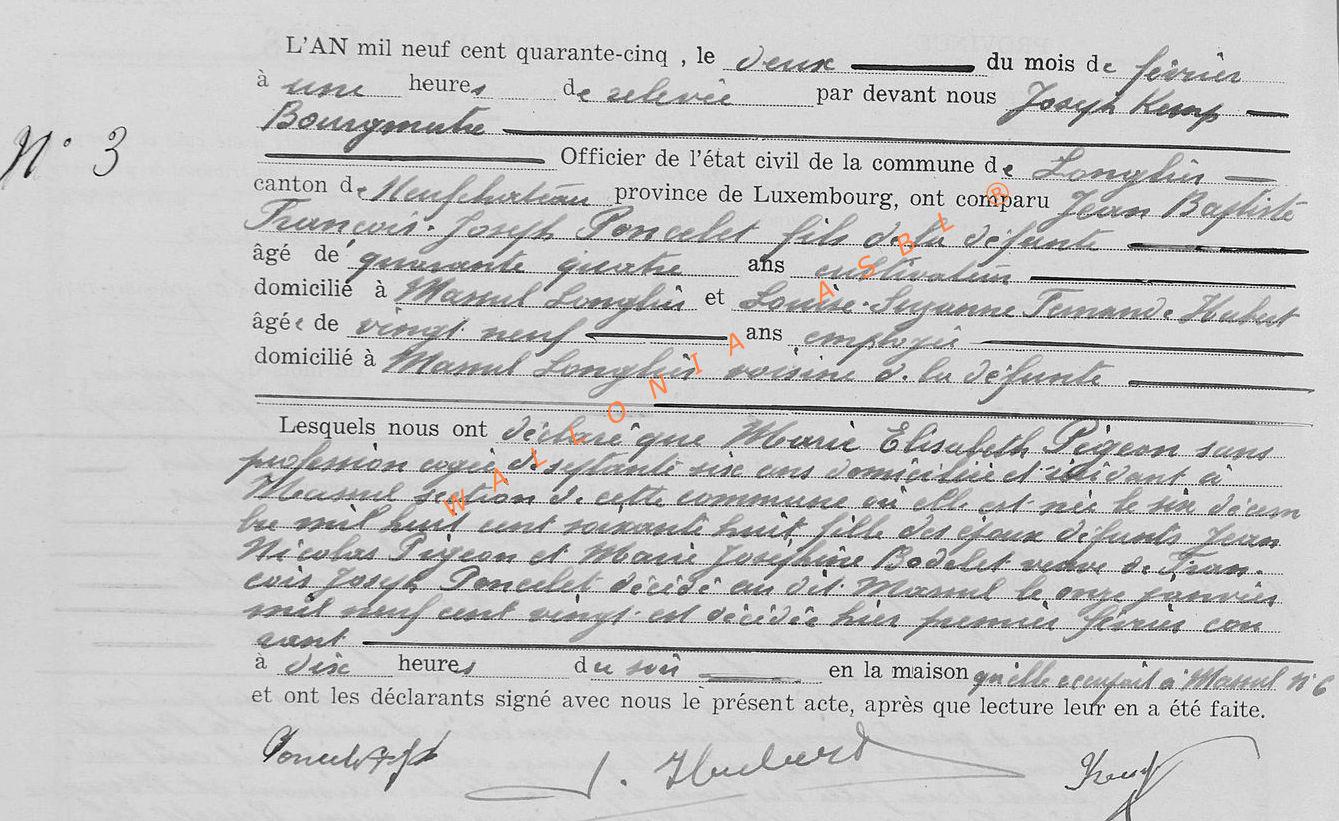 L'AN mil neuf cent quarante-cinq , le deux du mois de février
à une heures de relevée par devant nous Joseph Kemp
Bourgmestre
N° 3
Officier de l'état civil de la commune de Longlier
canton de Neufchateau province de Luxembourg, ont comparu Jean Baptiste
François-Joseph Poncelet fils de la défunte
âgé de quarante quatre ans cultivateur
domicilié à Massul Longlier et Louise-Suzanne Fernande Hubert
âgée de vingt neuf ans employée
domicilié à Massul Longlier voisine de la défunte
Lesquels nous ont déclaré que Marie Elisabeth Pigeon sans
profession agée de septante six ans domiciliée et résidant à
Massul section de cette commune où elle est née le six décem
bre mil huit cent soixante huit fille des époux défunts Jean
Nicolas Pigeon et Marie Joséphine Bodelet veuve de Fran-
çois Joseph Poncelet décédé au dit Massul le onze janvier
mil neuf cent vingt est décédée hier premier février cou
rant
à dix heures du soir en la maison qu'elle occupait à Massul N° 6
et ont les déclarants signé avec nous le présent acte, après que lecture leur en a été faite.
Poncelet J. Hubert Kemp
WALLONIA ASBL ®